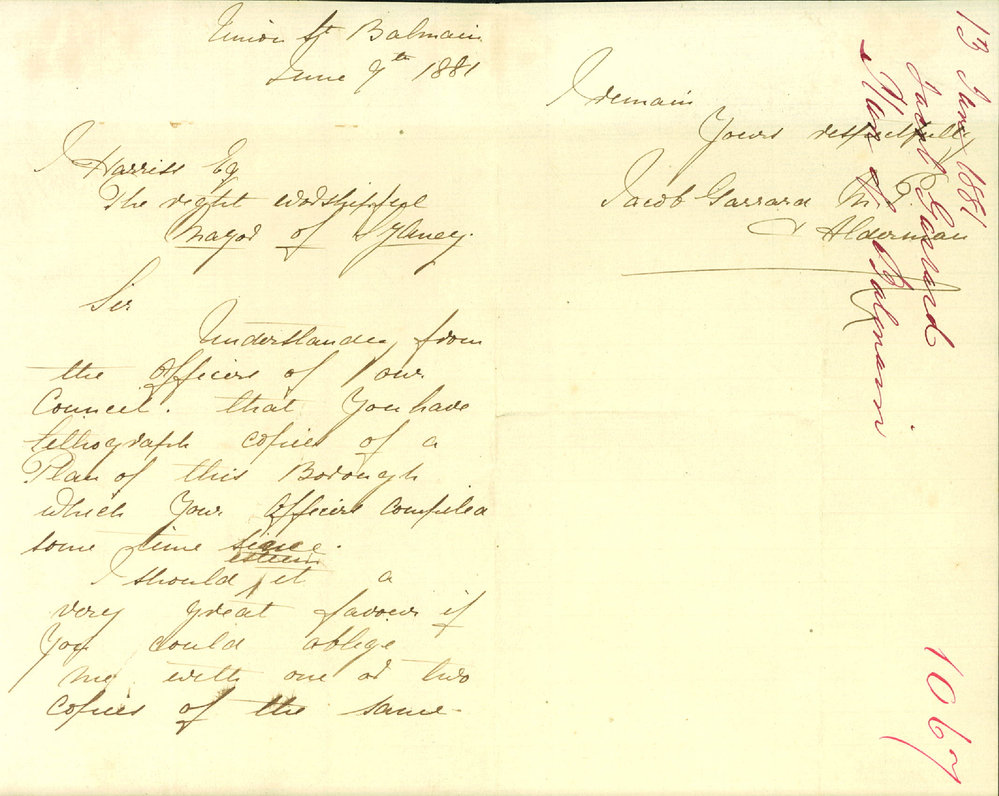 Union St Balmain
June 9th 1881
J Harriss Eq
The right worshipful
Mayor of Sydney.
Sir
Understanding from
the Officers of our
Council. that You have
lethograph copies of a
Plan of this Borough
which Your Officers compiled
some time since.
esteem
I should ^ it a
very great favour if
You could oblege
me with one or two
copies of the same
I remain
Yours respectfully
Jacob Garrard M.P.
& Alderman
13 June 1881
Jacob Garrard
Plan of Balmain
1067